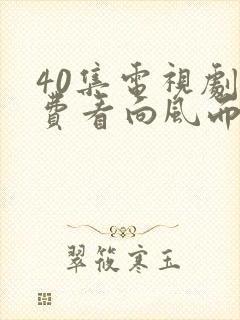 40集電視劇
費看向風而
翠筱寒玉